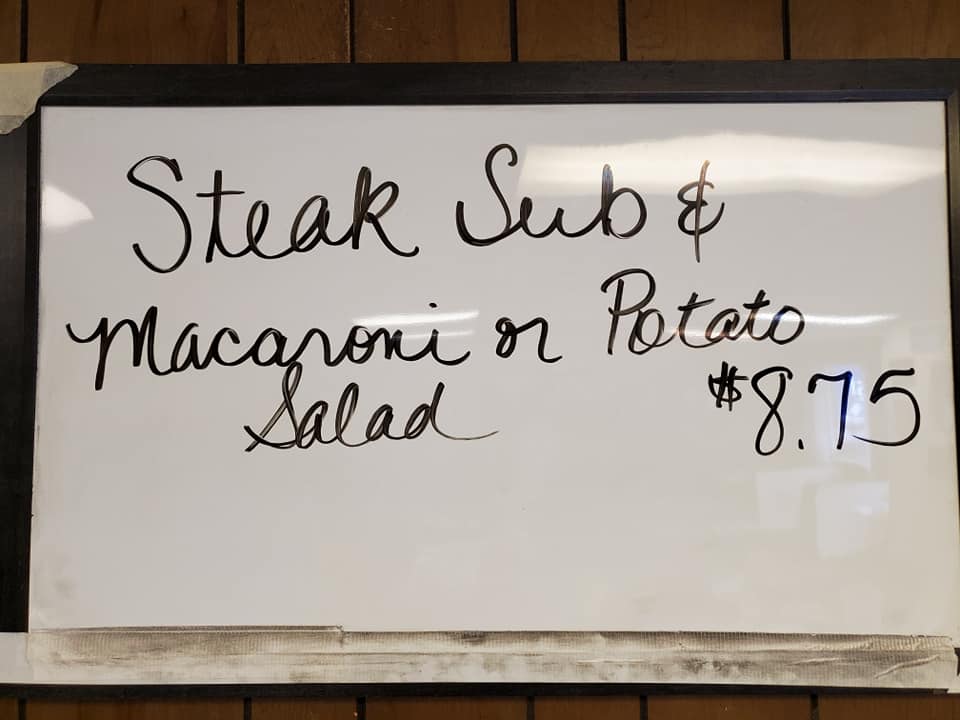 Steak Sub &
Macaroni or Potato
Salad $8.75